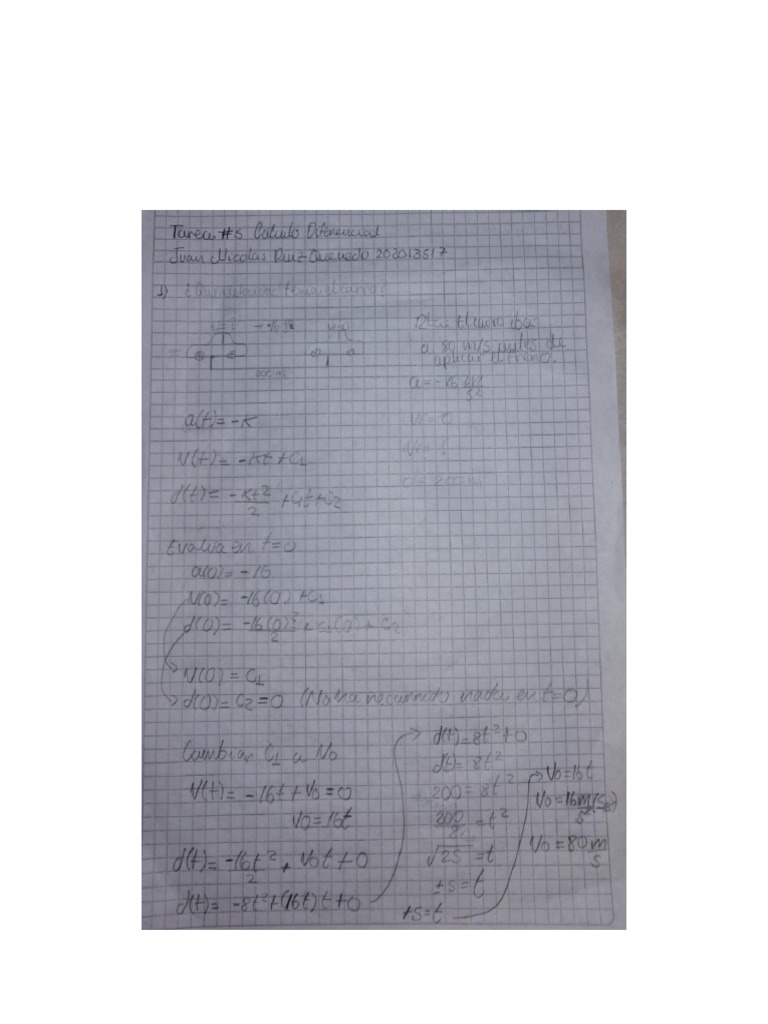 Tarea #5 Calculo Diferencial
Juan Nicolas Ruiz Quevedo 202013617
1) ¿Que velocidad tenia el carro?
Rta: El carro iba
a 80 m/s antes de
aplicar el freno.
V=? -16
200 m
a = -16 m/s²
V=0
a(t) = -K
V(t) = -Kt + C1
V0 = ?
d(t) = -Kt²/2 + C1t + C2
d = 200 m
Evalua en t=0
a(0) = -16
V(0) = -16(0) + C1
d(0) = -16(0)²/2 + C1(0) + C2
V(0) = C1
d(0) = C2 = 0 (No ha recorrido nada en t=0)
Cambian C1 a V0
V(t) = -16t + V0 = 0
V0 = 16t
d(t) = -16t²/2 + V0t + 0
d(t) = -8t² + (16t)t + 0
d(t) = 8t² + 0
d(t) = 8t²
200 = 8t²
200/8 = t²
√25 = t
±5 = t
+5 = t
V0 = 16t
V0 = 16 m/s² (5s)
V0 = 80 m/s